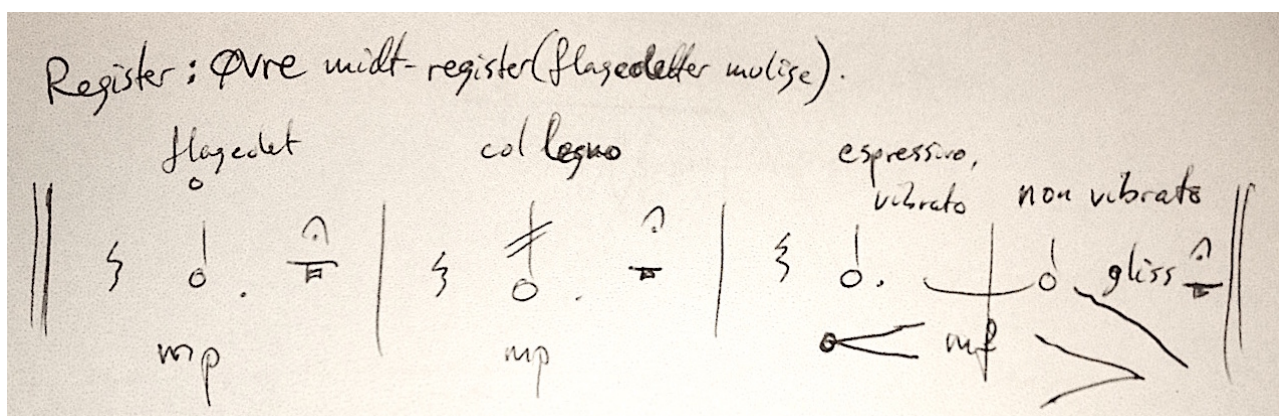 Register: Øvre midt-register (flageoletter mulige).
flageolet col legno espressivo,
vibrato non vibrato
gliss
mp mp mf